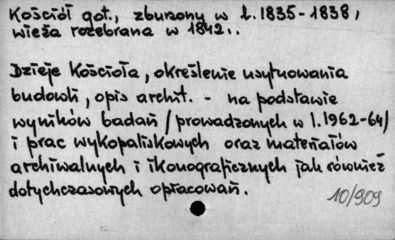 Kościół got., zburzony w l. 1835-1838,
wieża rozebrana w 1842..
Dzieje Kościoła, określenie usytuowania
budowli, opis archit. - na podstawie
wyników badań /prowadzonych w l. 1962-64/
i prac wykopaliskowych oraz materiałów
archiwalnych i ikonograficznych jak również
dotychczasowych opracowań.
10/909